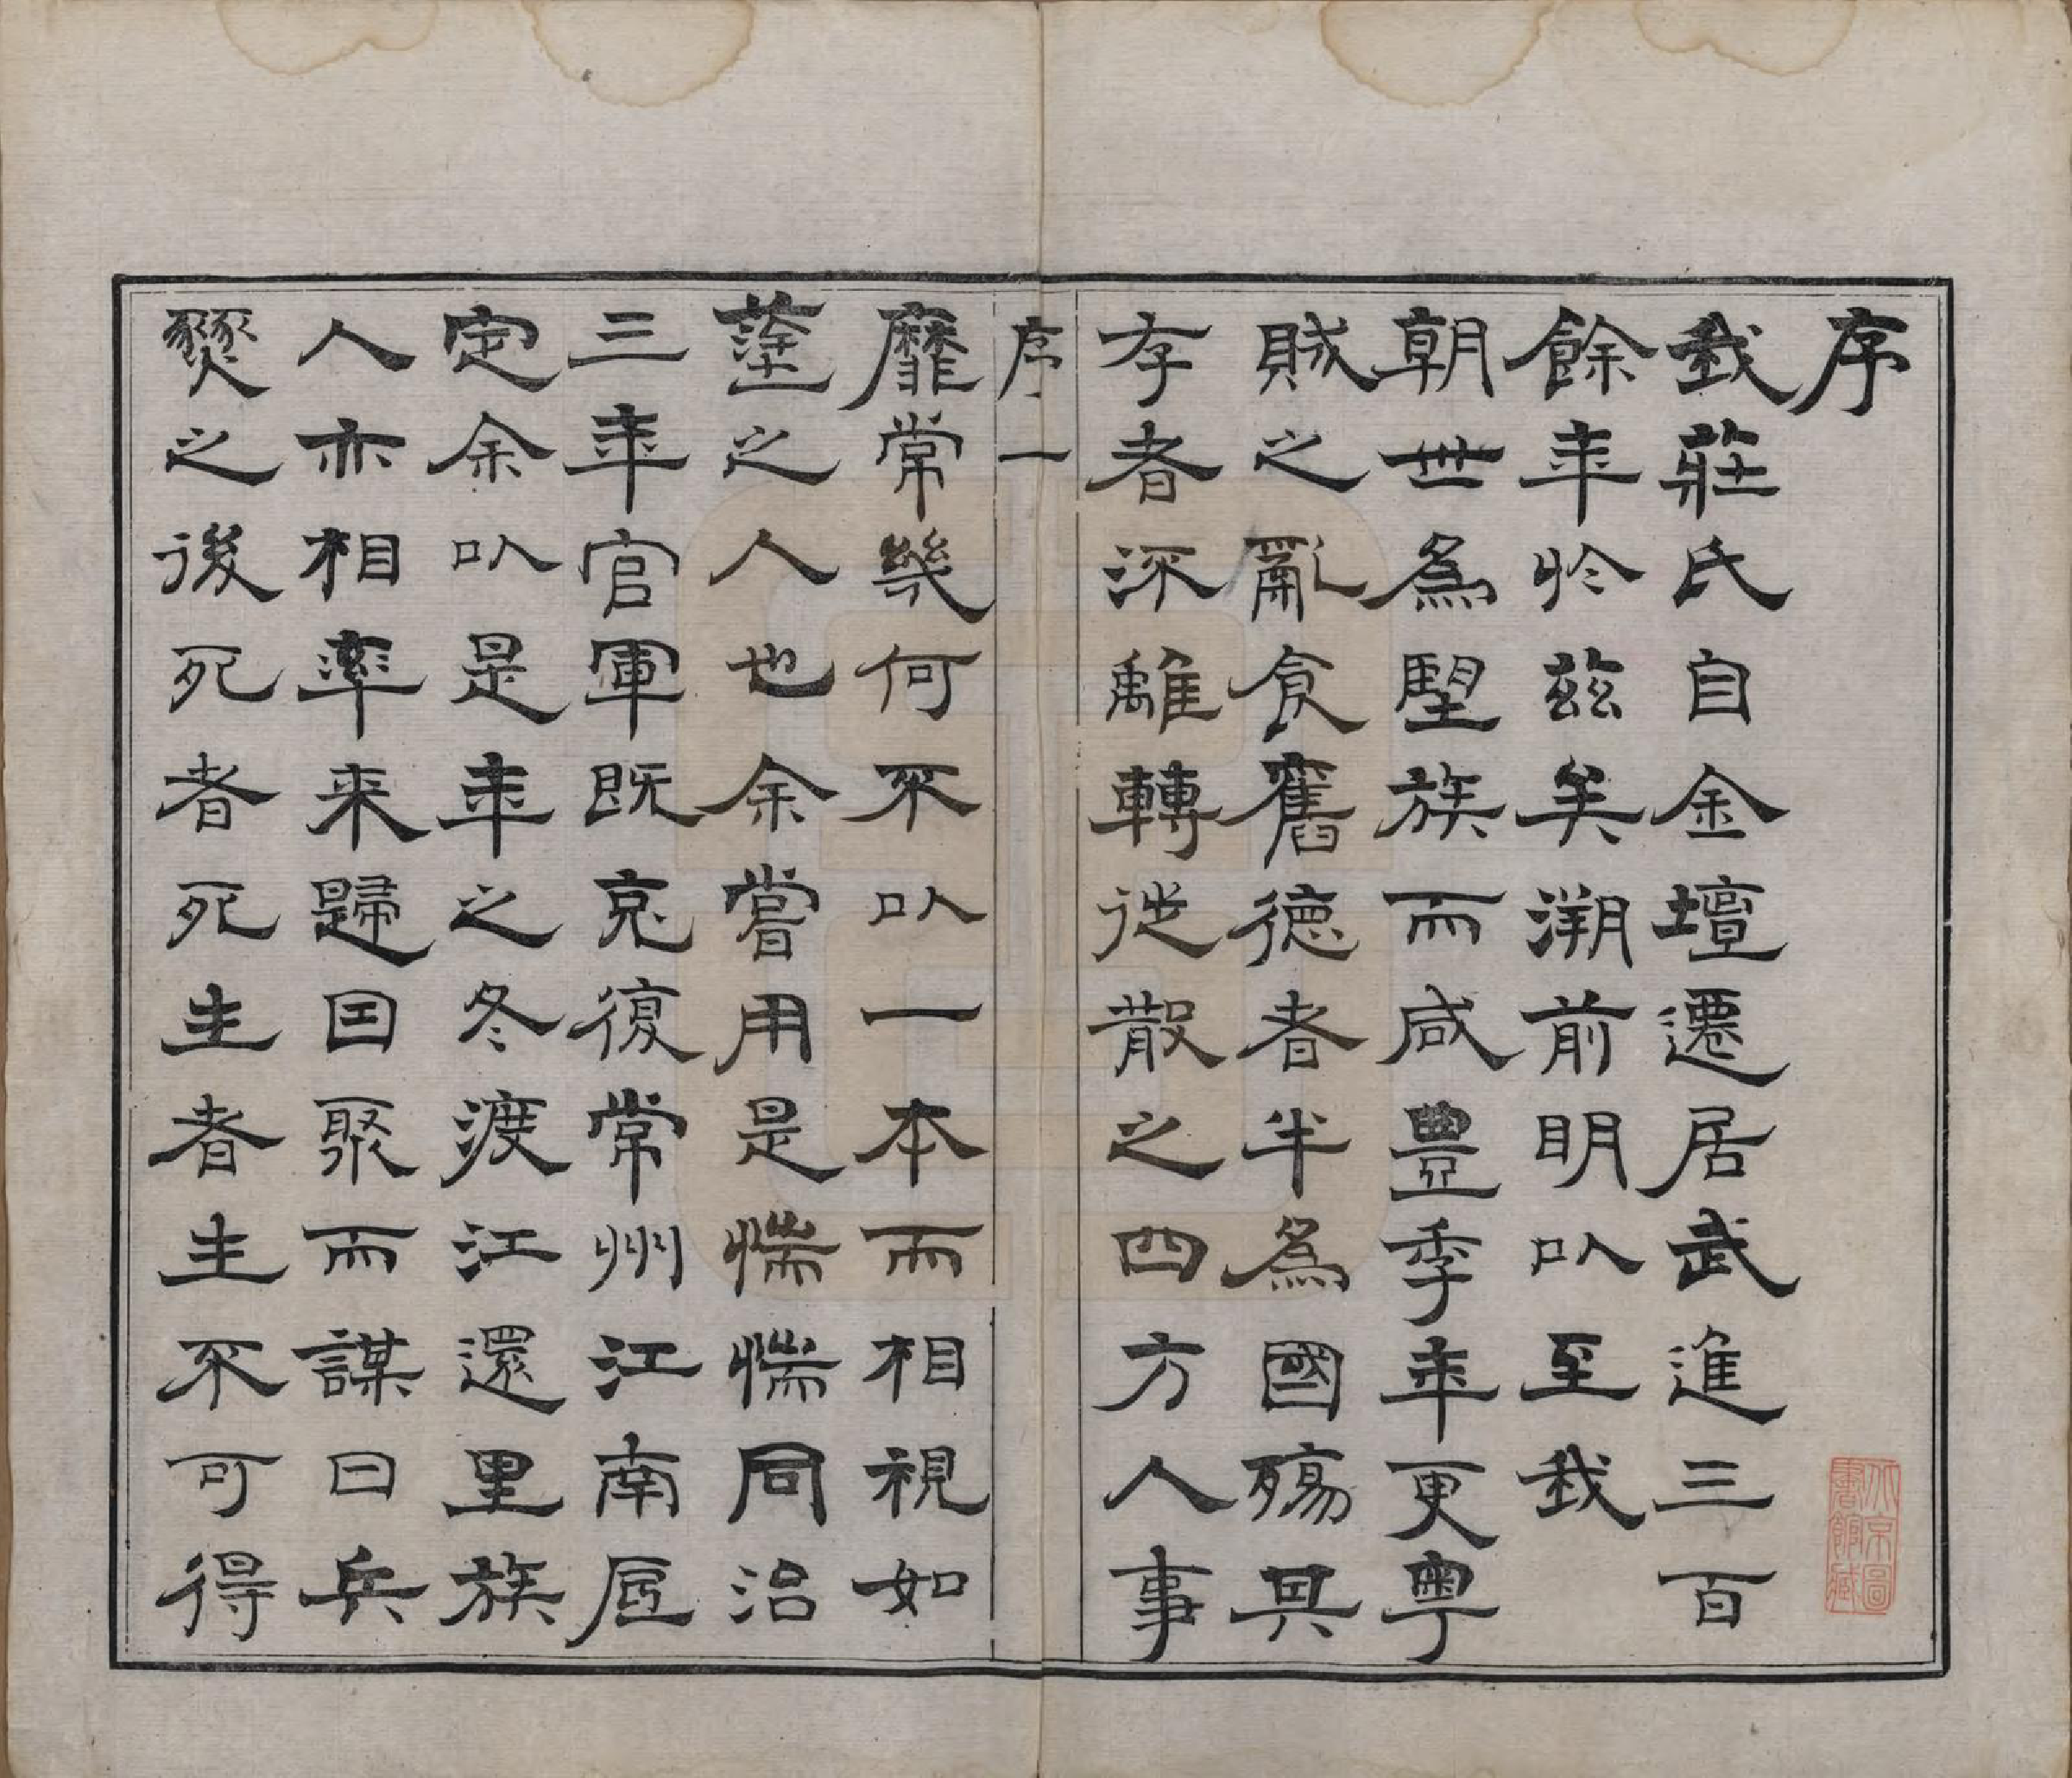 序
我莊氏自金壇遷居武進三百
餘年於茲矣溯前明㠯至我
朝世為望族而咸豐季年更粵
賊之亂食舊德者半為國殤其
存者流離轉徙散之四方人事
序一
靡常幾何不㠯一本而相視如
塗之人也余嘗用是惴惴同治
三年官軍既克復常州江南底
定余㠯是年之冬渡江還里族
人亦相率来歸因聚而謀曰兵
燹之後死者死生者生不可得
北京圖書館藏